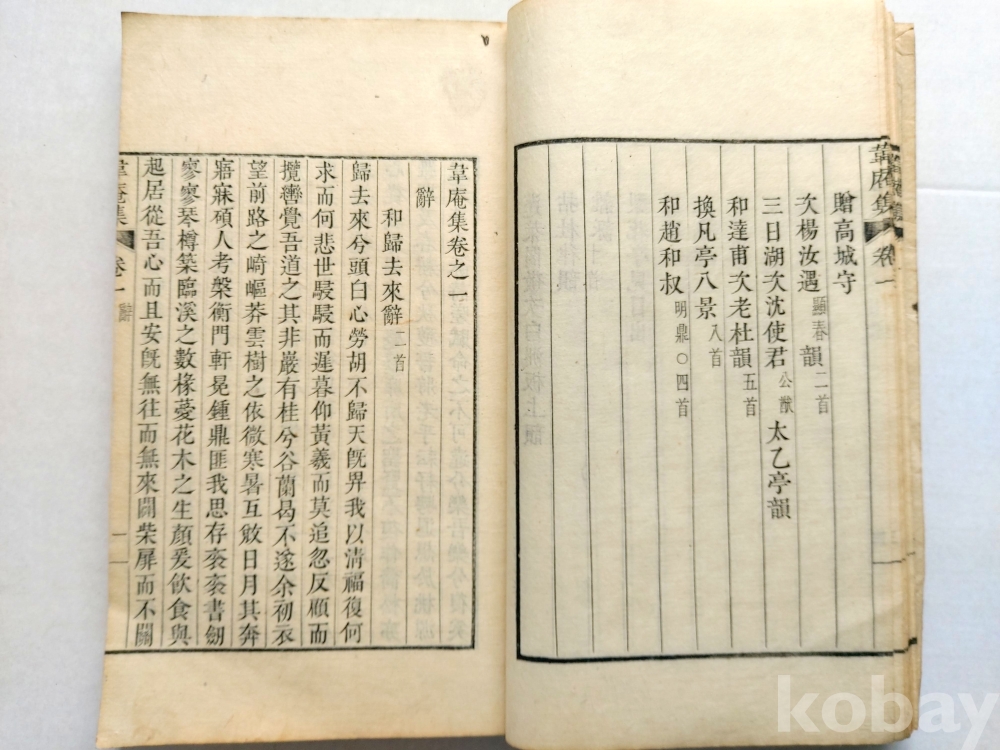 韋庵集 卷一
贈高城守
次楊汝遇顯春韻二首
三日湖次沈使君公猷太乙亭韻
和達甫次老杜韻五首
換凡亭八景八首
和趙和叔明鼎○四首
韋庵集卷之一
辭
和歸去來辭二首
歸去來兮頭白心勞胡不歸天旣畀我以清福復何
求而何悲世駸駸而遲暮仰黃羲而莫追忽反顧而
攬轡覺吾道之其非巖有桂兮谷蘭曷不遂余初衣
望前路之崎嶇莽雲樹之依微寒暑互敓日月其奔
寤寐碩人考槃衡門軒冕鍾鼎匪我思存衮衮書劒
寥寥琴樽築臨溪之數椽薆花木之生顏爰飮食與
起居從吾心而且安旣無往而無來闢柴扉而不關
韋庵集 卷一 辭 一
kobay